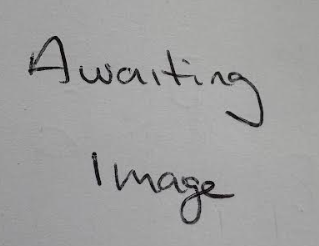 Awaiting
Image